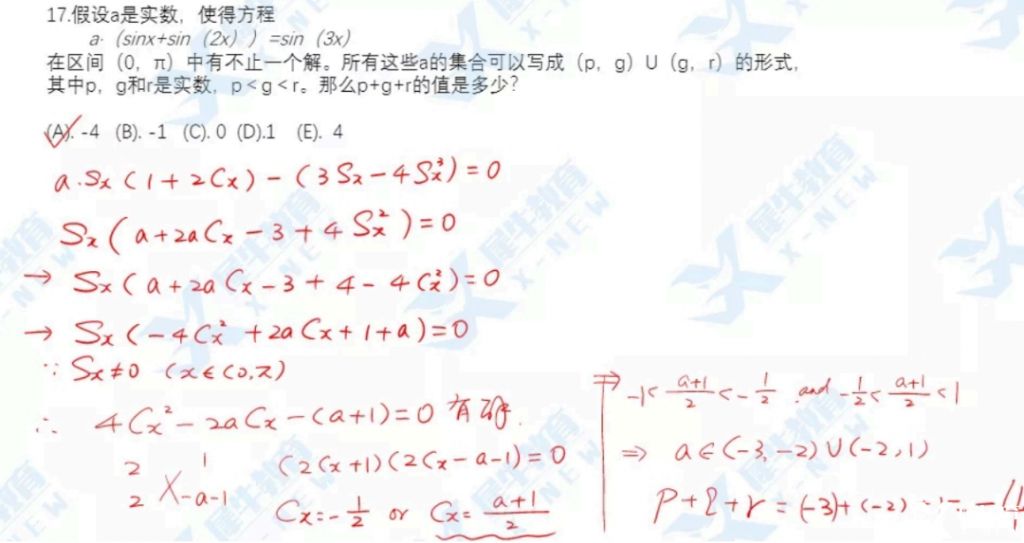 17.假设a是实数，使得方程
a·（sinx+sin（2x））=sin（3x）
在区间（0，π）中有不止一个解。所有这些a的集合可以写成（p，g）U（g，r）的形式，
其中p，g和r是实数，p<g<r。那么p+g+r的值是多少？
(A). -4 (B). -1 (C). 0 (D).1 (E). 4
a·Sx(1+2Cx)-(3Sx-4Sx³)=0
Sx(a+2aCx-3+4Sx²)=0
→ Sx(a+2aCx-3+4-4Cx²)=0
→ Sx(-4Cx²+2aCx+1+a)=0
∵ Sx≠0 (x∈(0,π)
∴ 4Cx²-2aCx-(a+1)=0 有解.
2 1
2 X -a-1
(2Cx+1)(2Cx-a-1)=0
Cx=-1/2 or Cx=(a+1)/2
⇒ -1<(a+1)/2<-1/2 and -1/2<(a+1)/2<1
⇒ a∈(-3,-2)∪(-2,1)
p+q+r=(-3)+(-2)
犀牛教育
X-NEW